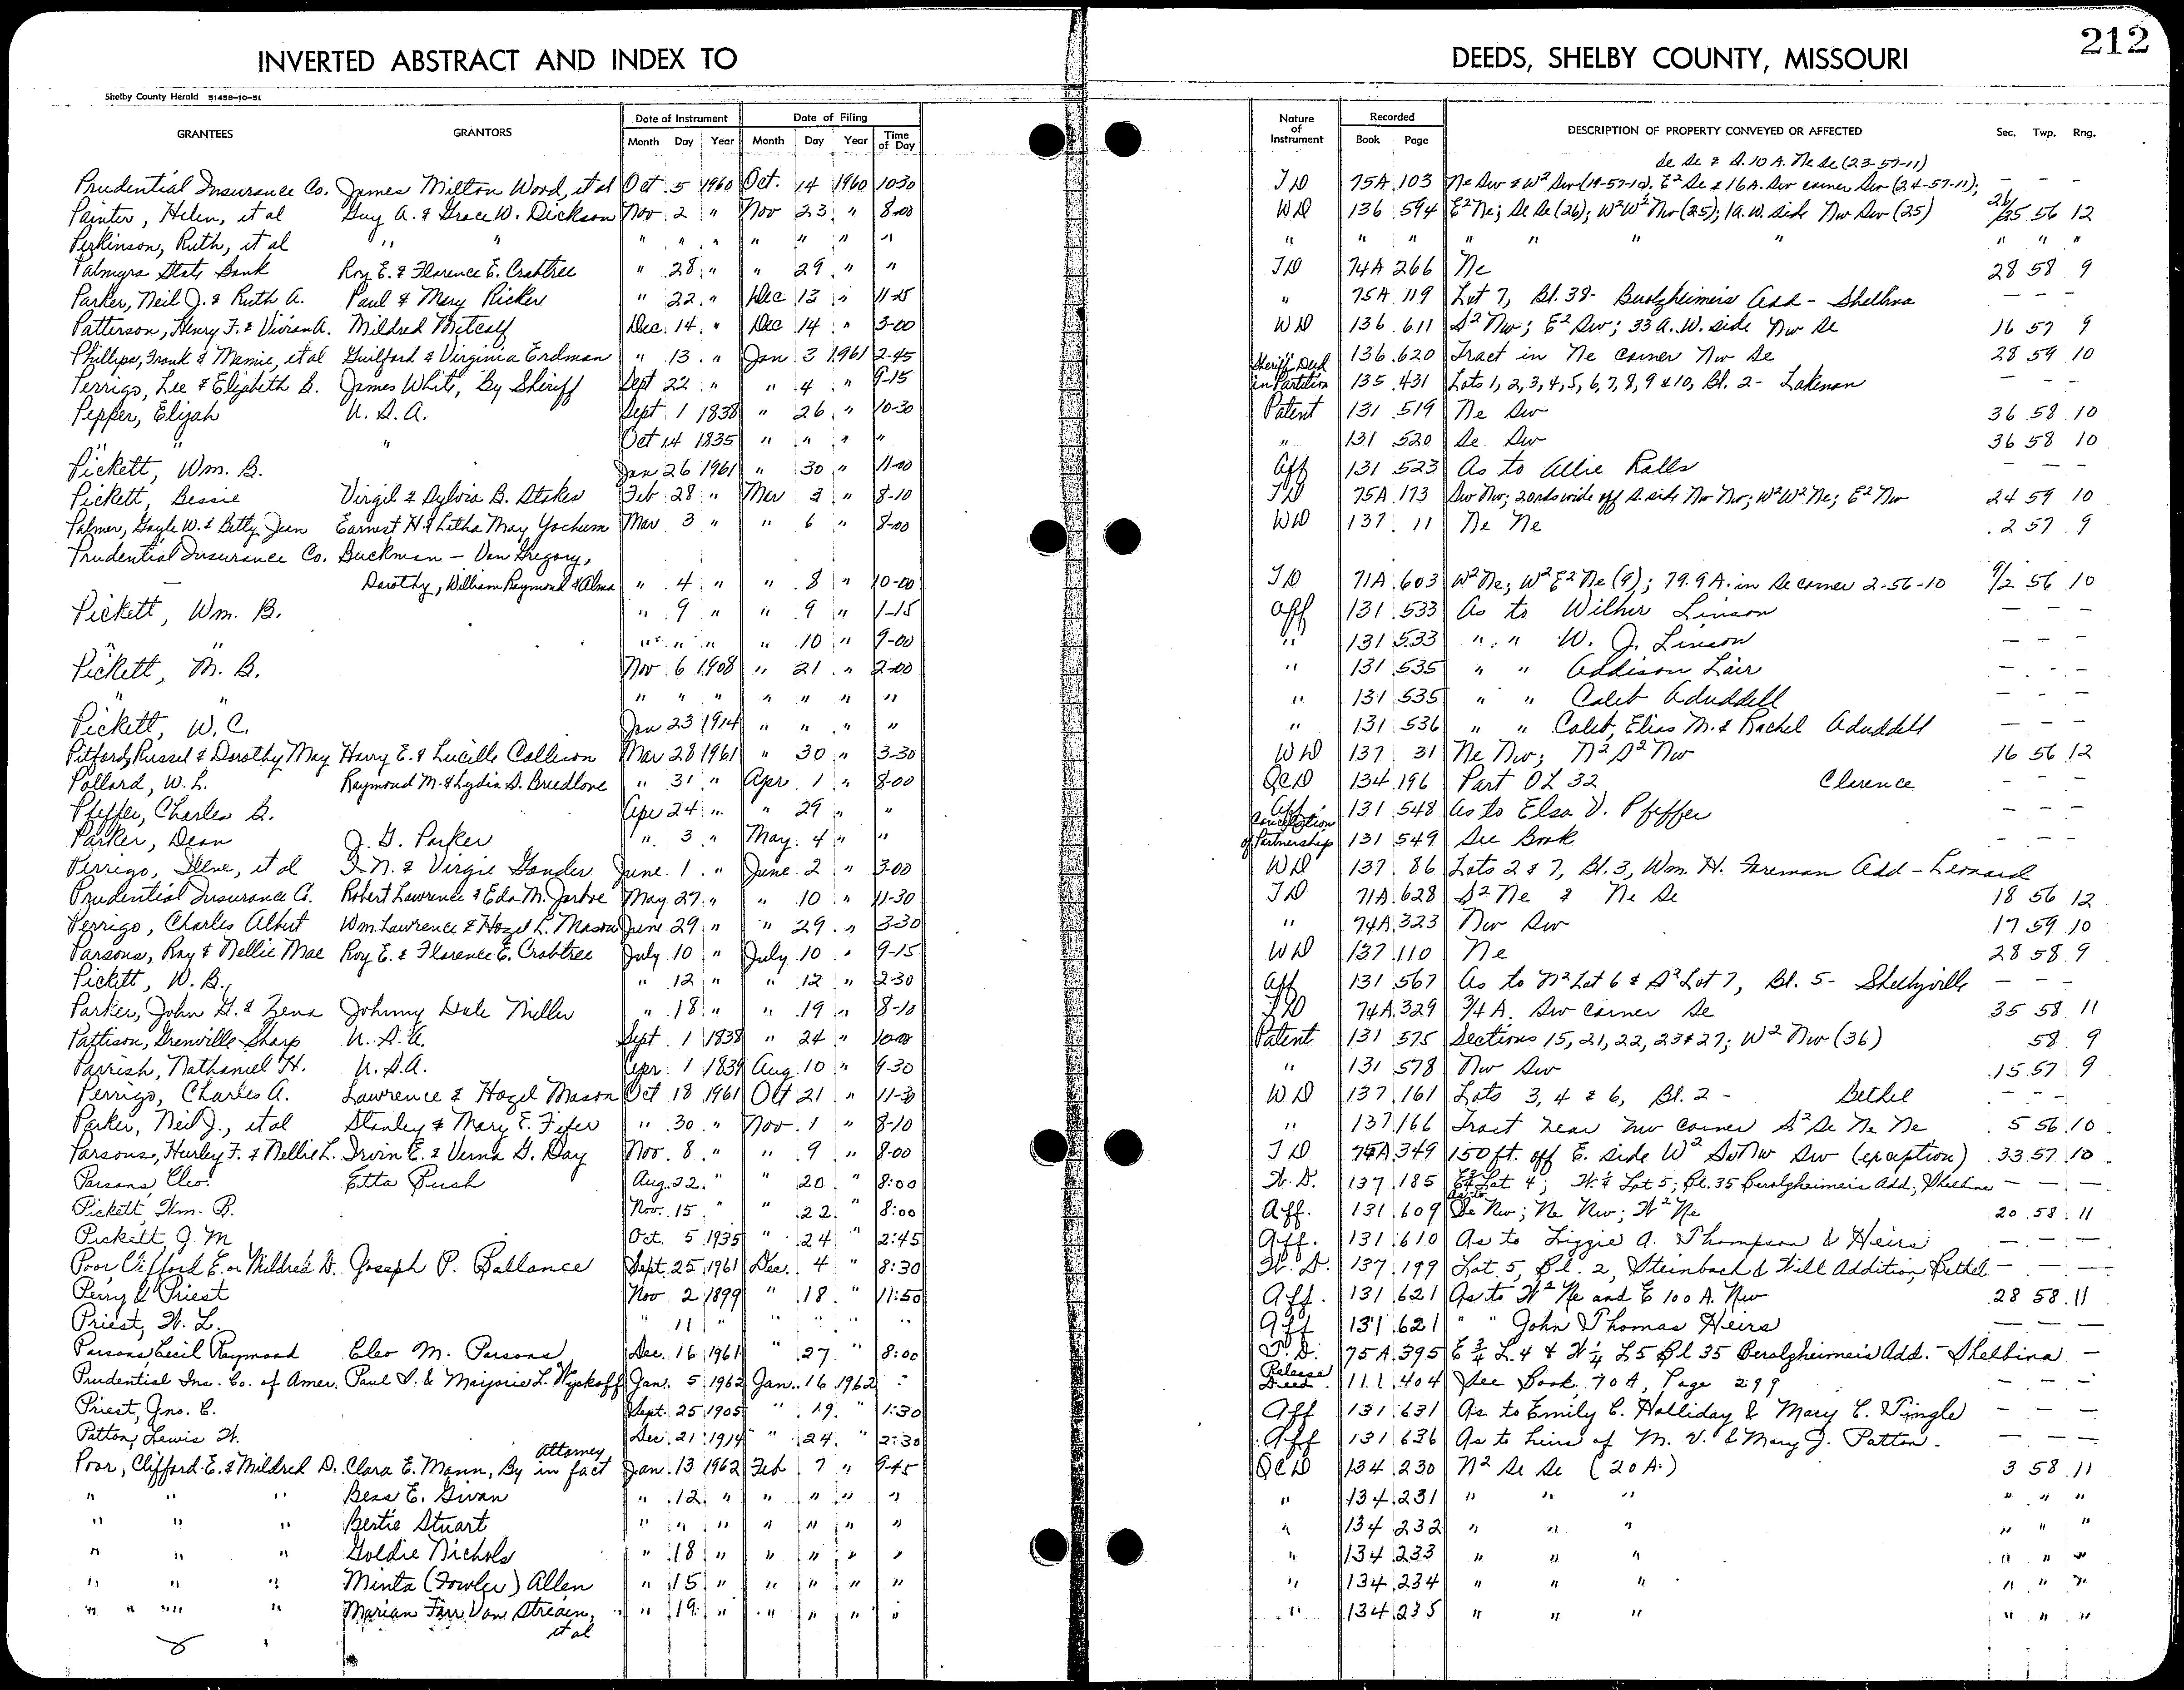 212
INVERTED ABSTRACT AND INDEX TO DEEDS, SHELBY COUNTY, MISSOURI
Shelby County Herald 51458-10-51
GRANTEES GRANTORS Date of Instrument Date of Filing Nature of Instrument Recorded DESCRIPTION OF PROPERTY CONVEYED OR AFFECTED Sec. Twp. Rng.
Month Day Year Month Day Year Time of Day Book Page
Se Se & S. 10 A. Ne Se (23-57-11)
Prudential Insurance Co. James Milton Wood, et al Oct 5 1960 Oct. 14 1960 10-30 TD 75A 103 Ne Sw & W² Sw (19-57-10), E² Se & 16 A. Sw corner Sw (24-57-11); - - -
Painter, Helen, et al Guy A. & Grace W. Dickson Nov 2 " Nov 23 " 8-00 WD 136 594 E² Ne; Se Se (26); W² W² Nw (25); 1 A. W. side Nw Sw (25) 26/25 56 12
Perkinson, Ruth, et al " " " " " " " " " " " " " " " " " " "
Palmyra State Bank Roy E. & Florence E. Crabtree " 28 " " 29 " " TD 74A 266 Ne 28 58 9
Parker, Neil J. & Ruth A. Paul & Mary Ricker " 22 " Dec 13 " 11-25 " 75A 119 Lot 7, Bl. 38- Berolzheimer's Add - Shelbina - - -
Patterson, Henry F. & Vivian A. Mildred Metcalf Dec. 14 " Dec 14 " 3-00 WD 136 611 S² Nw; E² Sw; 33 A. W. side Nw Se 16 57 9
Phillips, Frank & Mamie, et al Guilford & Virginia Erdman " 13 " Jan 3 1961 2-45 136 620 Tract in Ne corner Nw Se 28 59 10
Perrigo, Lee & Elizabeth B. James White, By Sheriff Sept 22 " " 4 " 9-15 Sheriff Deed in Partition 135 431 Lots 1, 2, 3, 4, 5, 6, 7, 8, 9 & 10, Bl. 2- Lakenan - - -
Pepper, Elijah U. S. A. Sept 1 1838 " 26 " 10-30 Patent 131 519 Ne Sw 36 58 10
" " " Oct 14 1835 " " " " " 131 520 Se Sw 36 58 10
Pickett, Wm. B. Jan 26 1961 " 30 " 11-00 Aff 131 523 As to Allie Ralls - - -
Pickett, Bessie Virgil & Sylvia B. Stokes Feb 28 " Mar 3 " 8-10 TD 75A 173 Sw Nw; 20 rds wide off S. side Nw Nw; W² W² Ne; E² Nw 24 59 10
Palmer, Gayle W. & Betty Jean Earnest H. & Letha May Yochum Mar 3 " " 6 " 8-00 WD 137 11 Ne Ne 2 57 9
Prudential Insurance Co. Buckman - Van Gregory,
Dorothy, William Raymond & Alma " 4 " " 8 " 10-00 TD 71A 603 W² Ne; W² E² Ne (9); 79.9 A. in Se corner 2-56-10 9/2 56 10
Pickett, Wm. B. " 9 " " 9 " 1-15 Aff 131 533 As to Wilher Linson - - -
" " " " " " 10 " 9-00 " 131 533 " " W. J. Linson - - -
Pickett, M. B. Nov 6 1908 " 21 " 2-00 " 131 535 " " Addison Lair - - -
" " " " " " " " " " 131 535 " " Caleb Aduddell - - -
Pickett, W. C. Jan 23 1914 " " " " " 131 536 " " Caleb, Elias M. & Rachel Aduddell - - -
Pitford, Russel & Dorothy May Harry E. & Lucille Collison Mar 28 1961 " 30 " 3-30 WD 137 31 Ne Nw; N² S² Nw 16 56 12
Pollard, W. L. Raymond M. & Lydia S. Breedlove " 31 " Apr 1 " 8-00 QCD 134 196 Part OL 32 Clarence - - -
Pfeffer, Charles B. Apr 24 " " 29 " " Aff 131 548 As to Elsa V. Pfeffer - - -
Parker, Dean J. G. Parker " 3 " May 4 " " Cancellation of Partnership 131 549 See Book - - -
Perrigo, Ilene, et al I. N. & Virgie Gander June 1 " June 2 " 3-00 WD 137 86 Lots 2 & 7, Bl. 3, Wm. H. Foreman Add - Leonard
Prudential Insurance Co. Robert Lawrence & Eda M. Jarboe May 27 " " 10 " 11-30 TD 71A 628 S² Ne & Ne Se 18 56 12
Perrigo, Charles Albert Wm. Lawrence & Hazel L. Mason June 29 " " 29 " 3-30 " 74A 323 Nw Sw 17 59 10
Parsons, Ray & Nellie Mae Roy E. & Florence E. Crabtree July 10 " July 10 " 9-15 WD 137 110 Ne 28 58 9
Pickett, W. B. " 12 " " 12 " 2-30 Aff 131 567 As to N² Lot 6 & S² Lot 7, Bl. 5- Shelbyville - - -
Parker, John G. & Zena Johnny Dale Miller " 18 " " 19 " 8-10 TD 74A 329 3/4 A. Sw corner Se 35 58 11
Pattison, Grenville Sharp U. S. A. Sept 1 1838 " 24 " 10-00 Patent 131 575 Sections 15, 21, 22, 23 & 27; W² Nw (36) 58 9
Parrish, Nathaniel H. U. S. A. Apr 1 1839 Aug 10 " 9-30 " 131 578 Nw Sw 15 57 9
Perrigo, Charles A. Lawrence & Hazel Mason Oct 18 1961 Oct 21 " 11-30 WD 137 161 Lots 3, 4 & 6, Bl. 2 - Bethel - - -
Parker, Neil J., et al Stanley & Mary E. Fifer " 30 " Nov. 1 " 8-10 " 137 166 Tract near Nw corner S² Se Ne Ne 5 56 10
Parsons, Hurley F. & Nellie L. Irvin E. & Verna G. Day Nov. 8 " " 9 " 8-00 TD 75A 349 150 ft. off E. side W² Sw Nw Sw (exception) 33 57 10
Parsons, Cleo. Etta Bush Aug. 22 " " 20 " 8:00 W. D. 137 185 Lot 4; W. ¼ Lot 5; Bl. 35 Berolzheimer's Add; Shelbina - - -
Pickett, Wm. B. Nov. 15 " " 22 " 8:00 Aff. 131 609 As to Se Nw; Ne Nw; W² Ne 20 58 11
Pickett, J. M. Oct. 5 1935 " 24 " 2:45 Aff. 131 610 As to Lizzie A. Thompson & Heirs - - -
Poor Clifford E. or Mildred D. Joseph P. Ballance Sept. 25 1961 Dec. 4 " 8:30 W. D. 137 199 Lot 5, Bl. 2, Steinbach & Will Addition, Bethel - - -
Perry & Priest Nov 2 1899 " 18 " 11:50 Aff. 131 621 As to W² Ne and E 100 A. Nw 28 58 11
Priest, W. L. " 11 " " " " " Aff 131 621 " " John Thomas Heirs - - -
Parsons, Cecil Raymond Cleo M. Parsons Dec. 16 1961 " 27 " 8:00 T. D. 75A 395 E ¾ L 4 & W ¼ L 5 Bl 35 Berolzheimer's Add. - Shelbina -
Prudential Ins. Co. of Amer. Paul S. & Marjorie L. Wyckoff Jan. 5 1962 Jan. 16 1962 " Release Deed 111 404 See Book 70A, Page 299 - - -
Priest, Jno. C. Sept. 25 1905 " 19 " 1:30 Aff 131 631 As to Emily C. Halliday & Mary C. Tingle - - -
Patton, Lewis W. Dec 21 1914 " 24 " 2:30 Aff 131 636 As to heirs of M. V. & Mary J. Patton. - - -
Poor, Clifford E. & Mildred D. Clara E. Mann, By Attorney in fact Jan. 13 1962 Feb 7 " 9-45 QCD 134 230 N² Se Se (20 A.) 3 58 11
" " " Bess E. Givan " 12 " " " " " " 134 231 " " " " " "
" " " Bertie Stuart " " " " " " " " 134 232 " " " " " "
" " " Goldie Nichols " 18 " " " " " " 134 233 " " " " " "
" " " Minta (Fowler) Allen " 15 " " " " " " 134 234 " " " " " "
" " " " Marian Farr Van Streain, et al " 19 " " " " " " 134 235 " " " " " "